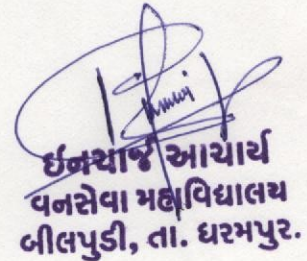 ઇનચાર્જ આચાર્ય
વનસેવા મહાવિદ્યાલય
બીલપુડી, તા. ધરમપુર.